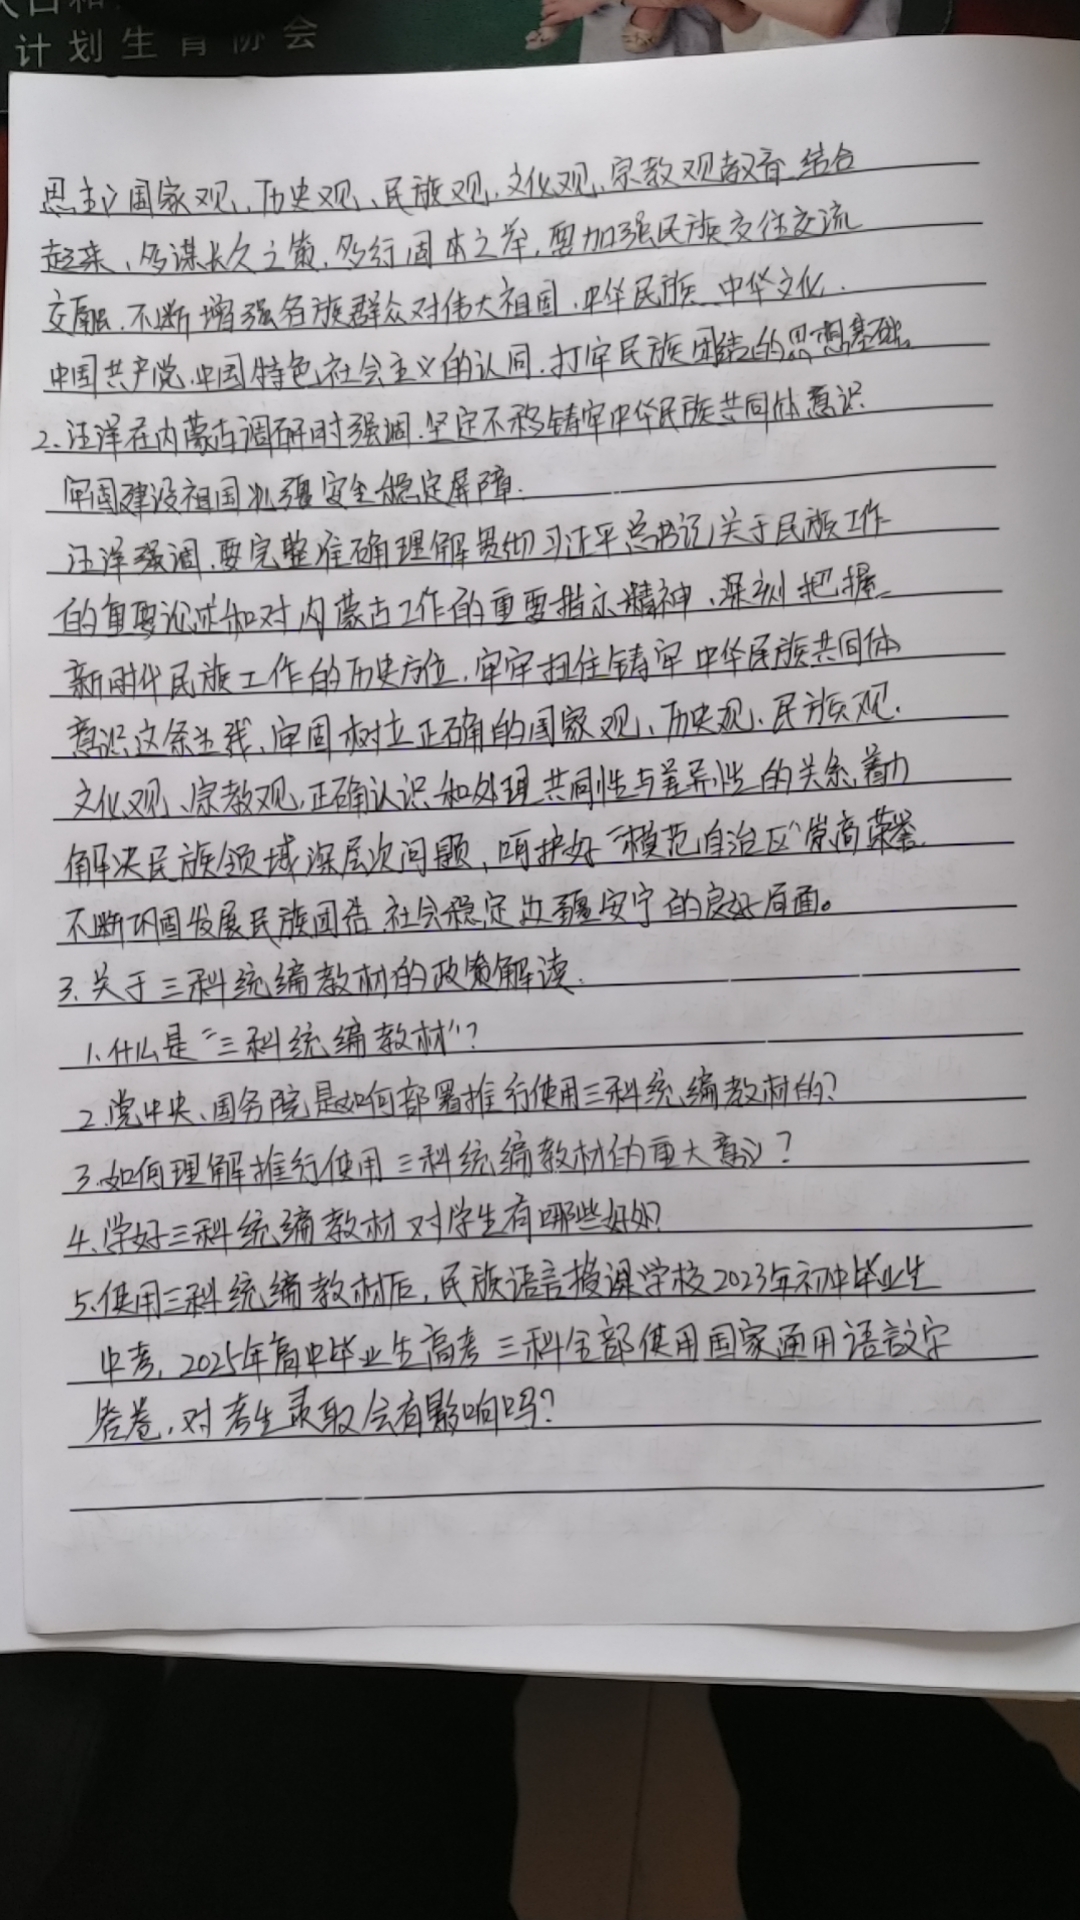 计划生育协会
思主义国家观、历史观、民族观、文化观、宗教观教育结合
起来,多谋长久之策,多行固本之举,要加强民族交往交流
交融,不断增强各族群众对伟大祖国、中华民族、中华文化、
中国共产党、中国特色社会主义的认同,打牢民族团结的思想基础。
2.汪洋在内蒙古调研时强调,坚定不移铸牢中华民族共同体意识
牢固建设祖国北疆安全稳定屏障.
汪洋强调,要完整准确理解贯彻习近平总书记关于民族工作
的重要论述和对内蒙古工作的重要指示精神,深刻把握
新时代民族工作的历史方位,牢牢扭住铸牢中华民族共同体
意识这条主线,牢固树立正确的国家观、历史观、民族观、
文化观、宗教观,正确认识和处理共同性与差异性的关系,着力
解决民族领域深层次问题,呵护好“模范自治区”崇高荣誉,
不断巩固发展民族团结社会稳定边疆安宁的良好局面。
3.关于三科统编教材的政策解读.
1.什么是“三科统编教材”?
2.党中央、国务院是如何部署推行使用三科统编教材的?
3.如何理解推行使用三科统编教材的重大意义?
4.学好三科统编教材对学生有哪些好处?
5.使用三科统编教材后,民族语言授课学校2023年初中毕业生
中考,2025年高中毕业生高考三科全部使用国家通用语言文字
答卷,对考生录取会有影响吗?